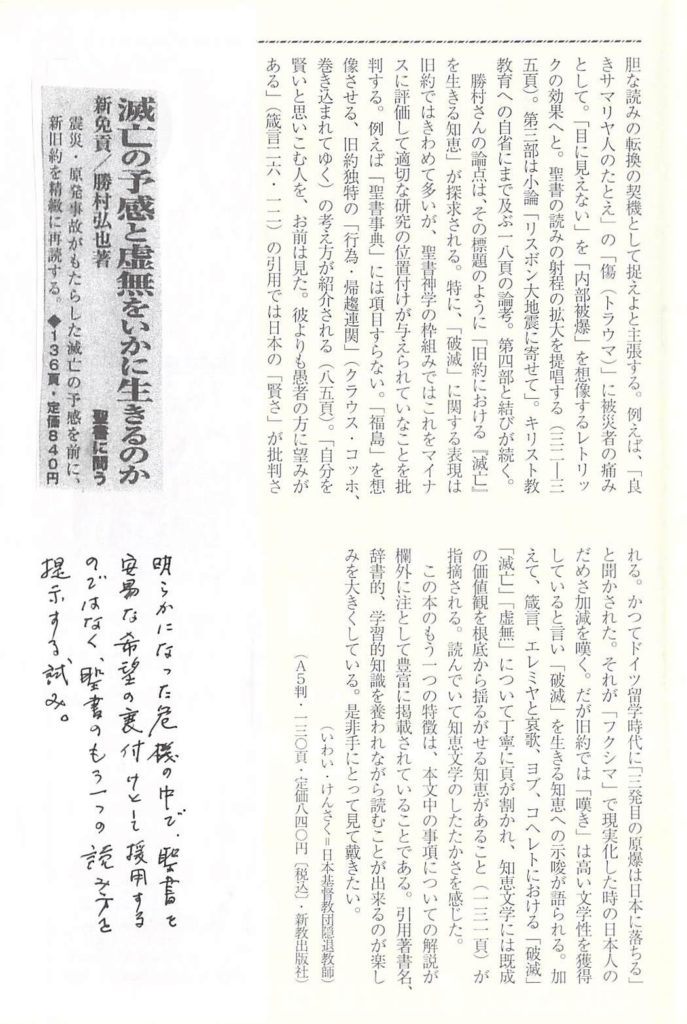 胆な読みの転換の契機として捉えよと主張する。例えば、「良
きサマリヤ人のたとえ」の「傷(トラウマ)」に被災者の痛み
として。「目に見えない」を「内部被爆」を想像するレトリッ
クの効果へと。聖書の読みの射程の拡大を提唱する(三二―三
五頁)。第三部は小論「リスボン大地震に寄せて」。キリスト教
教育への自省にまで及ぶ一八頁の論考。第四部と結びが続く。
勝村さんの論点は、その標題のように「旧約における『滅亡』
を生きる知恵」が探求される。特に、「破滅」に関する表現は
旧約ではきわめて多いが、聖書神学の枠組みではこれをマイナ
スに評価して適切な研究の位置付けが与えられていなことを批
判する。例えば「聖書事典」には項目すらない。「福島」を想
像させる、旧約独特の「行為・帰趨連関」(クラウス・コッホ、
巻き込まれてゆく)の考え方が紹介される(八五頁)。「自分を
賢いと思いこむ人を、お前は見た。彼よりも愚者の方に望みが
ある」(箴言二六・一二)の引用では日本の「賢さ」が批判さ
滅亡の予感と虚無をいかに生きるのか
聖書に問う
新免貢/勝村弘也著
震災・原発事故がもたらした滅亡の予感を前に、
新旧約を精緻に再読する。◆136頁・定価840円
れる。かつてドイツ留学時代に「三発目の原爆は日本に落ちる」
と聞かされた。それが「フクシマ」で現実化した時の日本人の
だめさ加減を嘆く。だが旧約では「嘆き」は高い文学性を獲得
していると言い「破滅」を生きる知恵への示唆が語られる。加
えて、箴言、エレミヤと哀歌、ヨブ、コヘレトにおける「破滅」
「滅亡」「虚無」について丁寧に頁が割かれ、知恵文学には既成
の価値観を根底から揺るがせる知恵があること(一三一頁)が
指摘される。読んでいて知恵文学のしたたかさを感じた。
この本のもう一つの特徴は、本文中の事項についての解説が
欄外に注として豊富に掲載されていることである。引用著書名、
辞書的、学習的知識を養われながら読むことが出来るのが楽し
みを大きくしている。是非手にとって見て戴きたい。
(いわい・けんさく=日本基督教団隠退教師)
(A5判・一三〇頁・定価八四〇円〔税込〕・新教出版社)
明らかになった危機の中で、聖書を
安易な希望の裏付けとして援用する
のではなく、聖書のもう一つの読み方を
提示する試み。